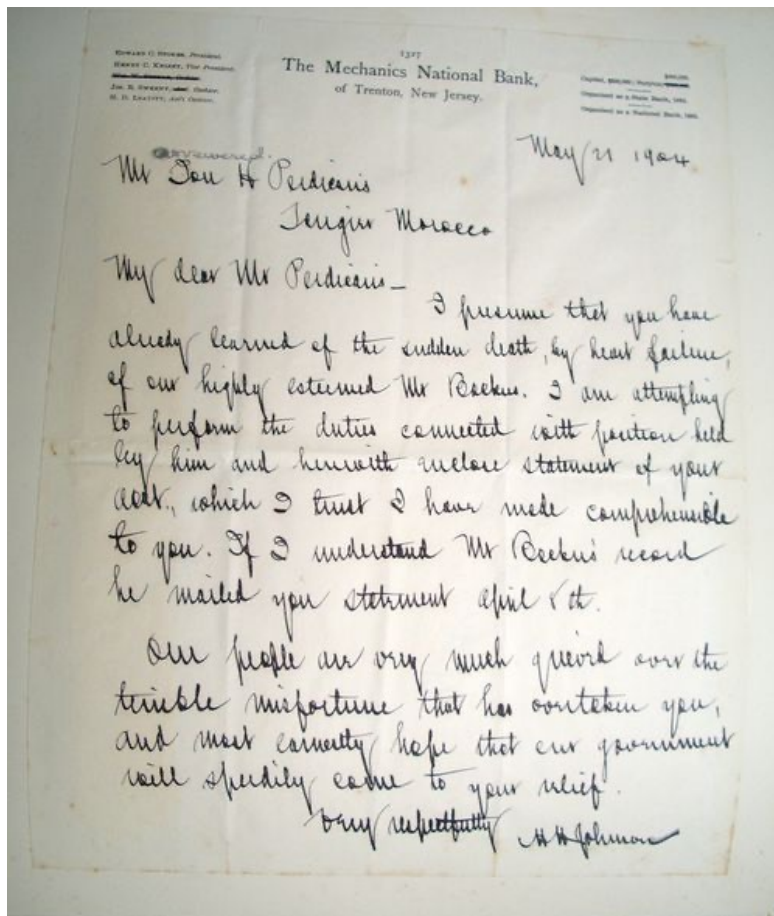 1327
EDWARD C. STOKES, President.
HENRY C. KELSEY, Vice President.
The Mechanics National Bank,
of Trenton, New Jersey.
Organized as a State Bank,
Organized as a National Bank,
answered.
May 21 1904
Mr Ion H Perdicaris
Tangier Morocco
My dear Mr Perdicaris –
I presume that you have
already learned of the sudden death, by heart failure,
of our highly esteemed Mr Backus. I am attempting
to perform the duties connected with position held
by him and herewith enclose statement of your
acct., which I trust I have made comprehensible
to you. If I understand Mr Backus' record
he mailed you statement April 8th.
Our people are very much grieved over the
terrible misfortune that has overtaken you,
and most earnestly hope that our government
will speedily come to your relief.
Very respectfully
H H Johnson